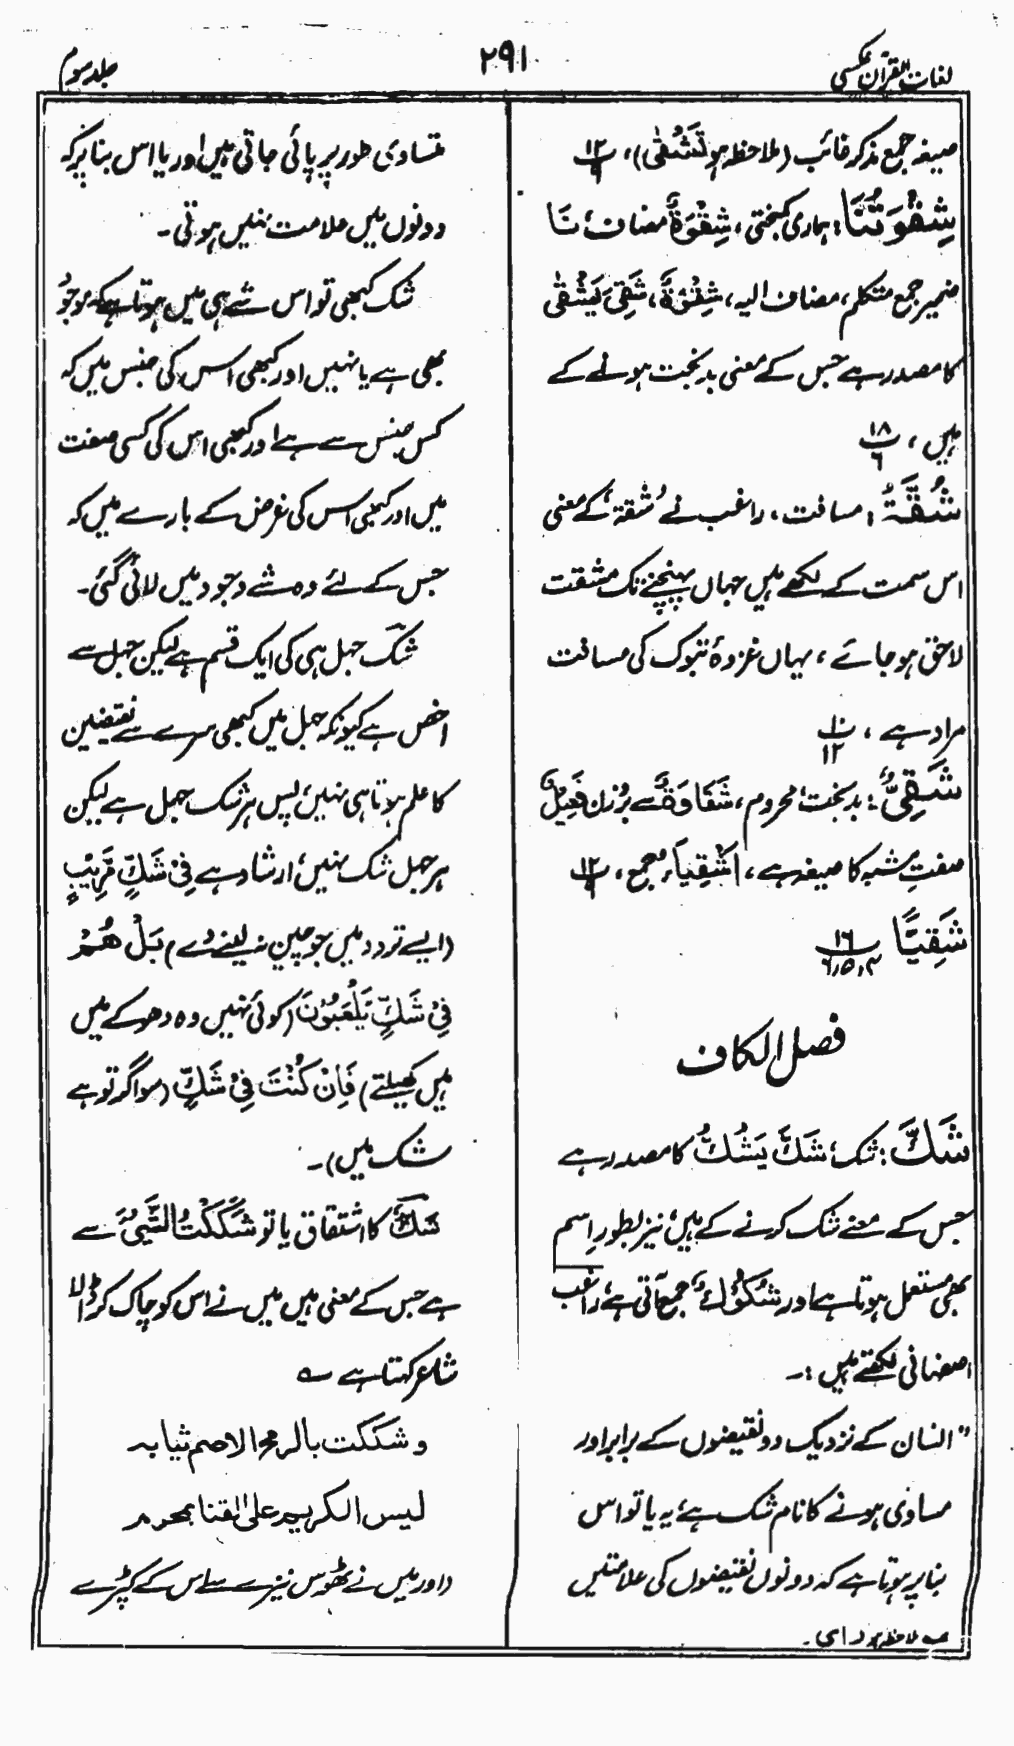 لغات القرآن عکسی
۲۹۱
جلد سوم
صیغہ جمع مذکر غائب (ملاحظہ ہو تَشْقٰی)،
شِقْوَتُنَا : ہماری کمبختی، شِقْوَةٌ مضاف، نَا
ضمیر جمع متکلم، مضاف الیہ، شِقْوَةٌ، شَقِیَ یَشْقٰی
کا مصدر ہے جس کے معنی بدبخت ہونے کے
ہیں، ۱۸ ۶
شُقَّةُ : مسافت، راغب نے شُقة کے معنی
اس سمت کے لکھے ہیں جہاں پہنچنے تک مشقت
لاحق ہو جائے، یہاں غزوۂ تبوک کی مسافت
مراد ہے، ۱۰ ۱۲
شَقِیٌّ : بدبخت، محروم، شَقَاوَةٌ سے بروزن فَعِیْلٌ
صفتِ مشبہ کا صیغہ ہے، اَشْقِیَاءُ جمع، ۱۲ ۹
شَقِیًّا ۱۶ ۴،۵،۶
فصل الکاف
شَكَّ : شک، شَكَّ یَشُكُّ کا مصدر ہے
جس کے معنے شک کرنے کے ہیں، نیز بطور اسم
بھی مستعمل ہوتا ہے اور شُكُوْكٌ جمع آتی ہے، راغب
اصفہانی لکھتے ہیں :۔
" انسان کے نزدیک دو نقیضوں کے برابر اور
مساوی ہونے کا نام شک ہے، یہ یا تو اس
بنا پر ہوتا ہے کہ دونوں نقیضوں کی علامتیں
ملاحظہ ہو
متساوی طور پر پائی جاتی ہیں اور یا اس بنا پر کہ
دونوں میں علامت نہیں ہوتی۔
شک کبھی تو اس شے ہی میں ہوتا ہے کہ موجود
بھی ہے یا نہیں اور کبھی اس کی جنس میں کہ
کس جنس سے ہے اور کبھی اس کی کسی صفت
میں اور کبھی اس کی غرض کے بارے میں کہ
جس کے لئے وہ شے وجود میں لائی گئی۔
شک جہل ہی کی ایک قسم ہے لیکن جہل سے
اخص ہے کیونکہ جہل میں کبھی سرے سے نقیضین
کا علم ہوتا ہی نہیں، پس ہر شک جہل ہے لیکن
ہر جہل شک نہیں، ارشاد ہے فِیْ شَكٍّ مُّرِیْبٍ
(ایسے تردد میں جو چین نہ لینے دے) بَلْ هُمْ
فِیْ شَكٍّ یَّلْعَبُوْنَ (کوئی نہیں وہ دھوکے میں
ہیں کھیلتے) فَاِنْ كُنْتَ فِیْ شَكٍّ (سو اگر تو ہے
شک میں)۔
شَكٌّ کا اشتقاق یا تو شَكَكْتُ الشَّیْءَ سے
ہے جس کے معنی ہیں میں نے اس کو چاک کر ڈالا
شاعر کہتا ہے ؎
و شككت بالرمح الاصم ثيابه
ليس الكريم على القنا بمحرم
(اور میں نے ٹھوس نیزے سے اس کے کپڑے